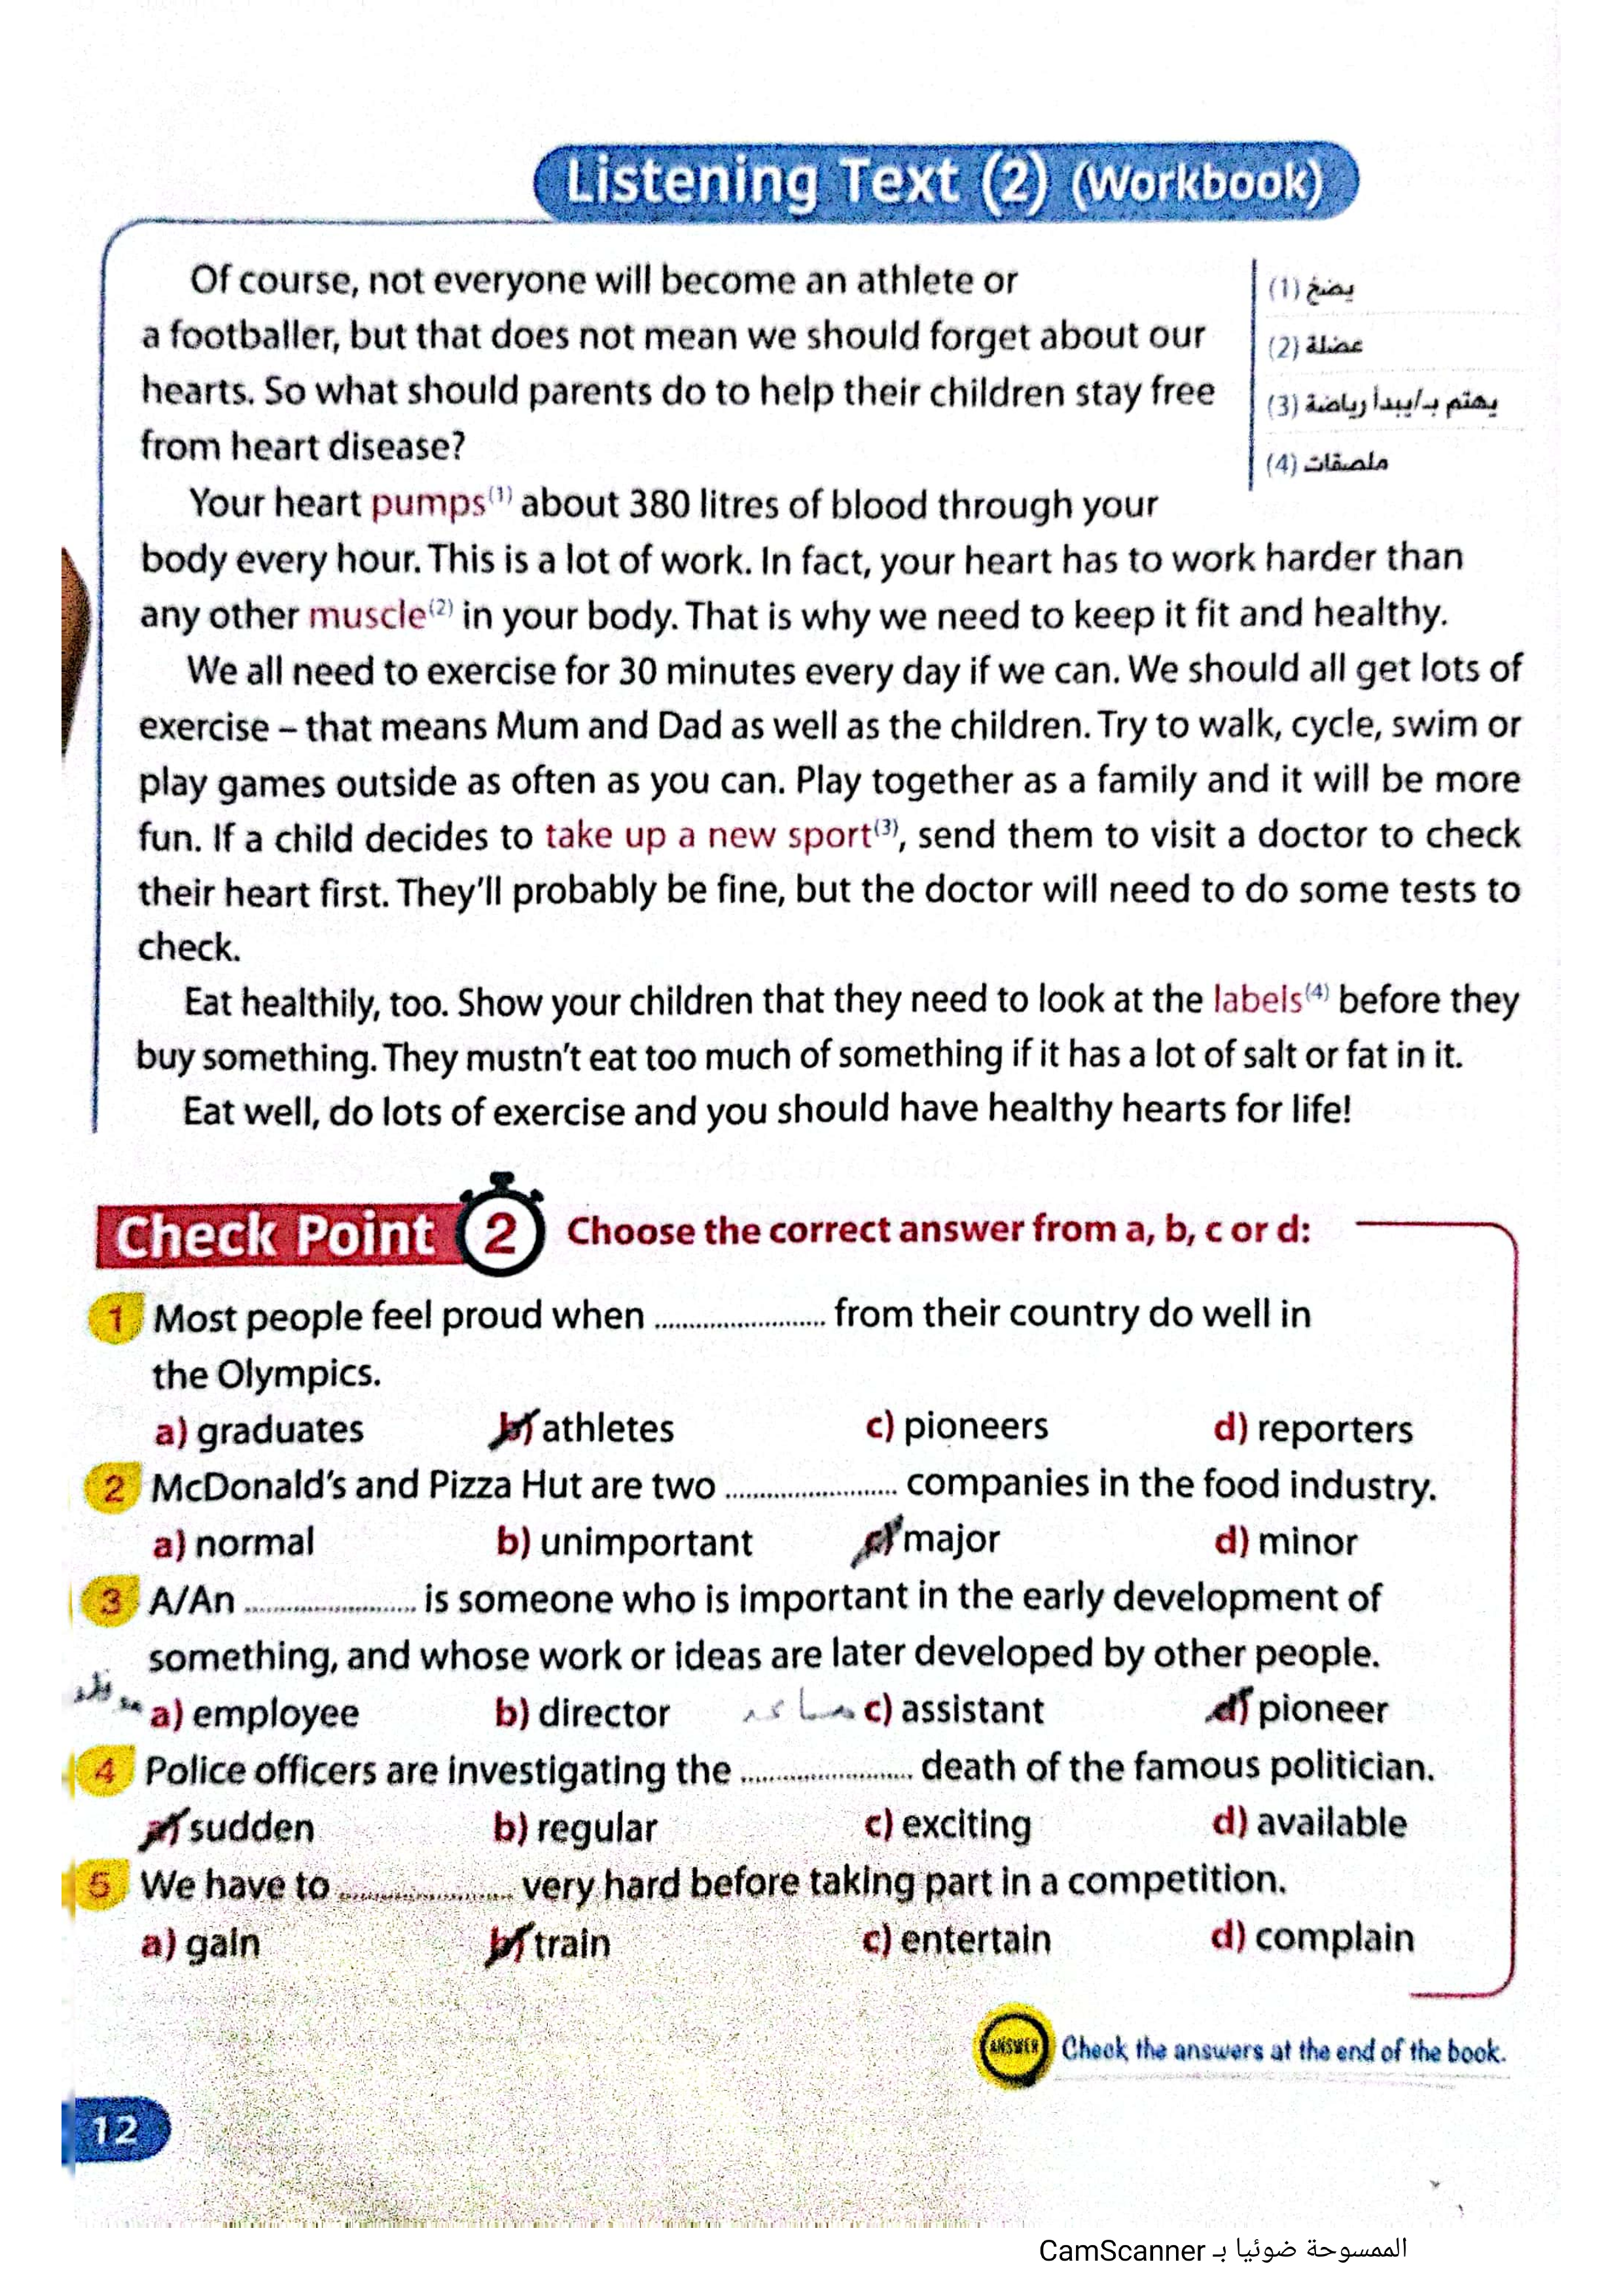 Listening Text (2) (Workbook)
Of course, not everyone will become an athlete or
a footballer, but that does not mean we should forget about our
hearts. So what should parents do to help their children stay free
from heart disease?
(1) يضخ
(2) عضلة
(3) يهتم بـ/يبدأ رياضة
(4) ملصقات
Your heart pumps(1) about 380 litres of blood through your
body every hour. This is a lot of work. In fact, your heart has to work harder than
any other muscle(2) in your body. That is why we need to keep it fit and healthy.
We all need to exercise for 30 minutes every day if we can. We should all get lots of
exercise – that means Mum and Dad as well as the children. Try to walk, cycle, swim or
play games outside as often as you can. Play together as a family and it will be more
fun. If a child decides to take up a new sport(3), send them to visit a doctor to check
their heart first. They'll probably be fine, but the doctor will need to do some tests to
check.
Eat healthily, too. Show your children that they need to look at the labels(4) before they
buy something. They mustn't eat too much of something if it has a lot of salt or fat in it.
Eat well, do lots of exercise and you should have healthy hearts for life!
Check Point 2 Choose the correct answer from a, b, c or d:
1 Most people feel proud when ........................ from their country do well in
the Olympics.
a) graduates b) athletes c) pioneers d) reporters
2 McDonald's and Pizza Hut are two ........................ companies in the food industry.
a) normal b) unimportant c) major d) minor
3 A/An ........................ is someone who is important in the early development of
something, and whose work or ideas are later developed by other people.
a) employee b) director c) assistant d) pioneer
4 Police officers are investigating the ........................ death of the famous politician.
a) sudden b) regular c) exciting d) available
5 We have to ........................ very hard before taking part in a competition.
a) gain b) train c) entertain d) complain
ANSWER Check the answers at the end of the book.
12
الممسوحة ضوئيا بـ CamScanner